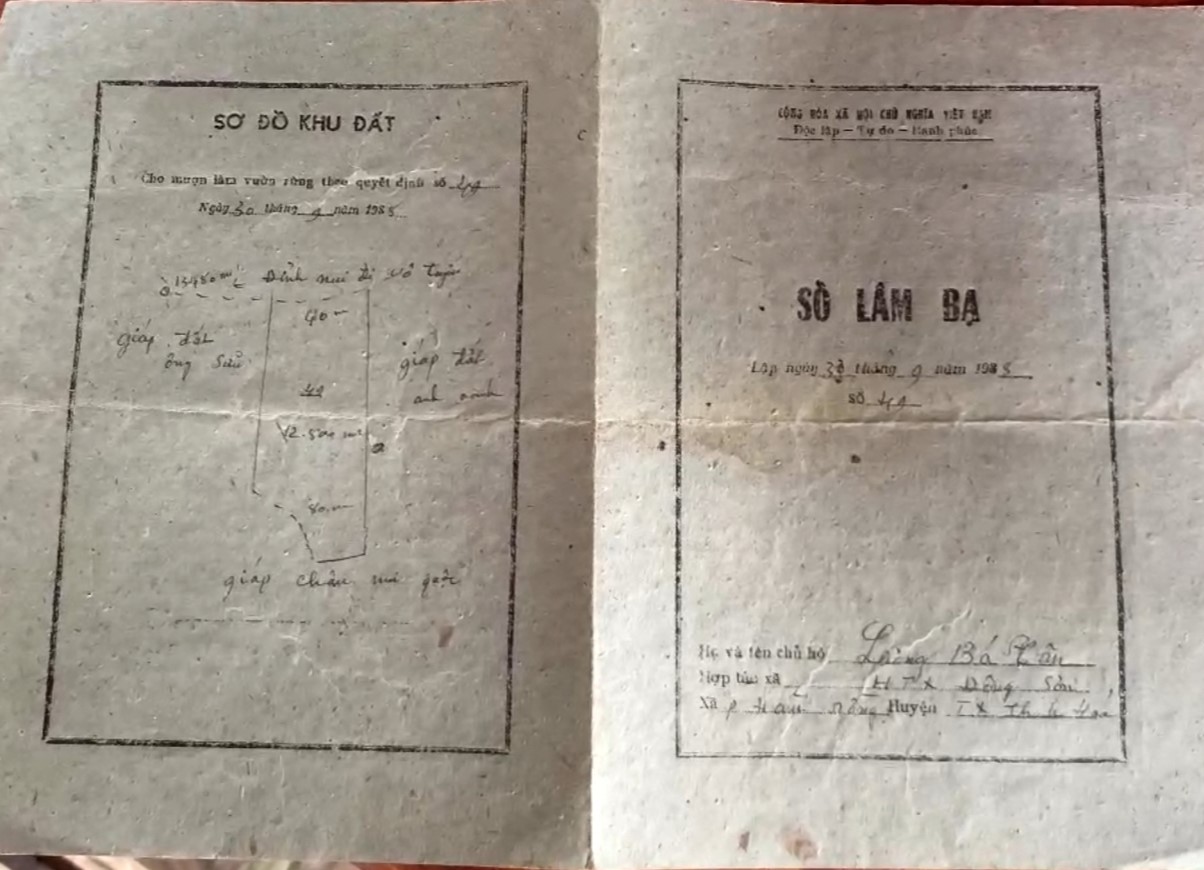 SƠ ĐỒ KHU ĐẤT
Cho mượn làm vườn rừng theo quyết định số 44
Ngày 30 tháng 9 năm 1988
13480m² Đỉnh núi đi vô tuyến
40m
giáp đất
ông Sửu
giáp đất
anh
44
12.500 m²
80m
giáp chân núi
CỘNG HÒA XÃ HỘI CHỦ NGHĨA VIỆT NAM
Độc lập — Tự do — Hạnh phúc
SỔ LÂM BẠ
Lập ngày 30 tháng 9 năm 1988
số 44
Họ và tên chủ hộ Lương Bá Tân
Hợp tác xã HTX Đông Sơn
Xã P Hàm Rồng Huyện TX Thanh Hóa